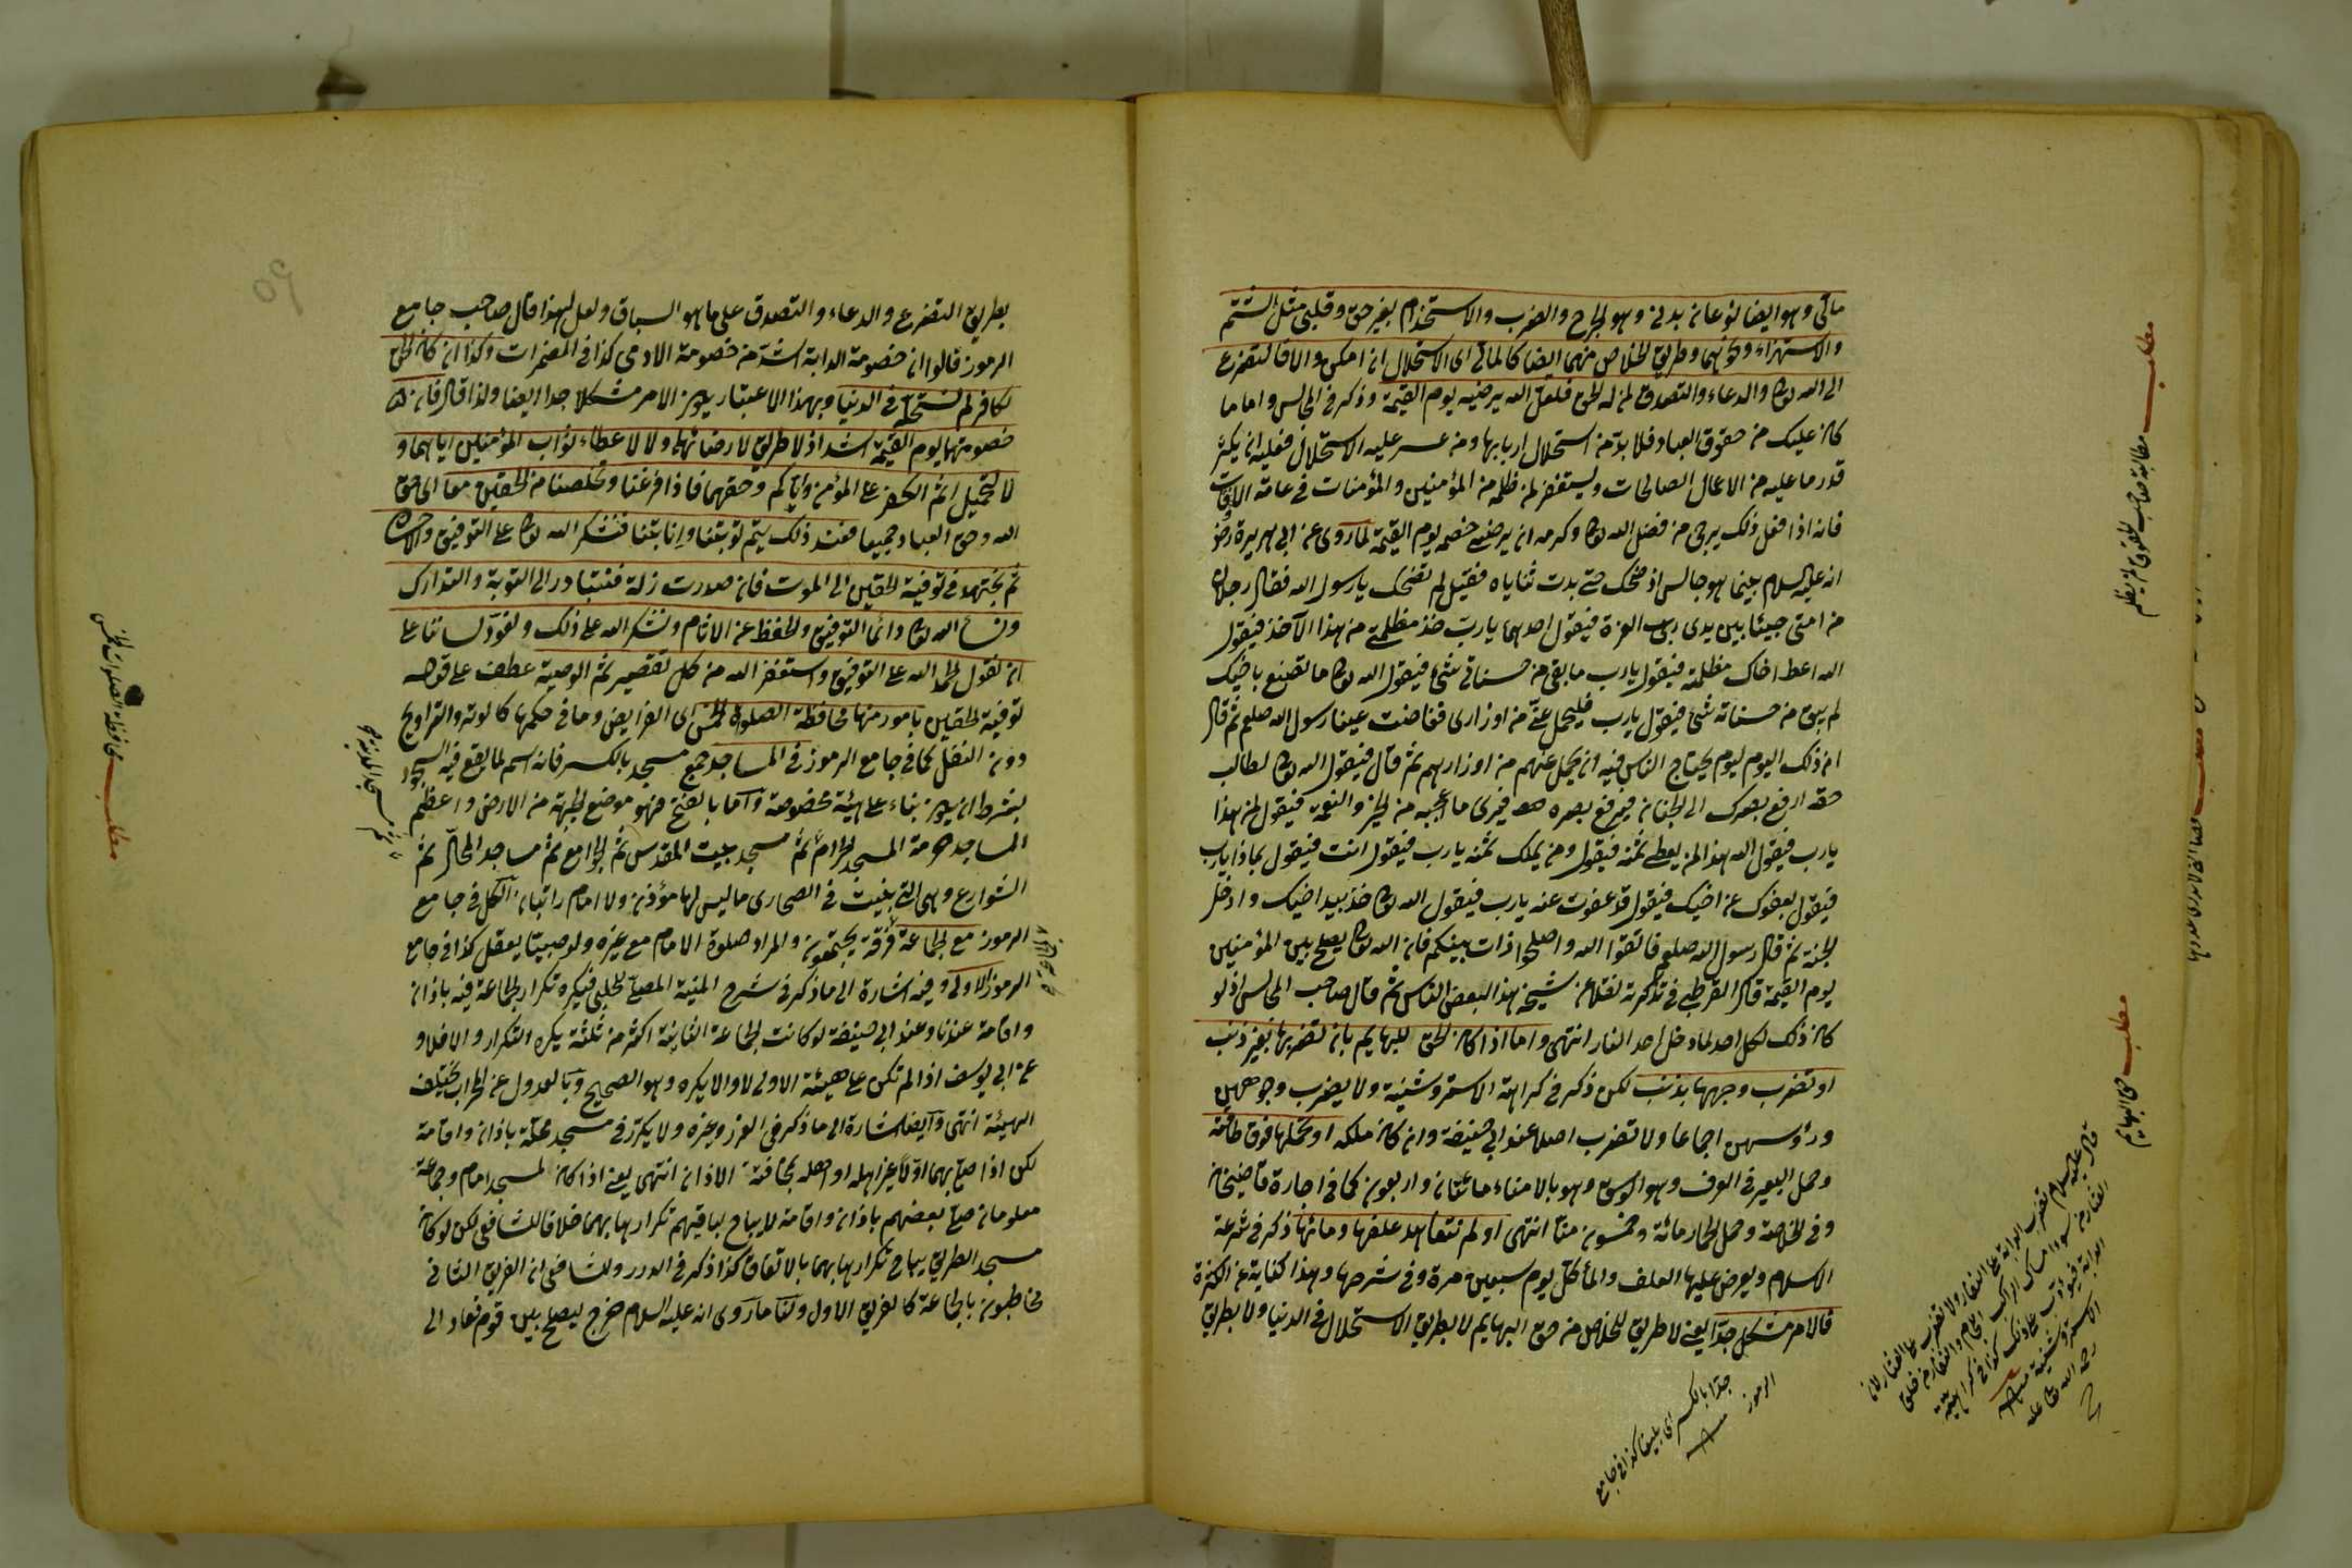 مالي وهو ايضا نوعان بدني وهو الجرح والضرب والاستخدام بغير حق وقلبي مثل الشتم
والاستهزاء ونحوهما وطريق الخلاص منهما ايضا كالمالي اى الاستحلال ان امكن والا فالتضرع
الى الله تعالى والدعاء والتصدق لمن له الحق فلعل الله يرضيه يوم القيمة وذكر في المجالس واما ما
كان عليك من حقوق العباد فلا بد من استحلال اربابها ومن عسر عليه الاستحلال فعليه ان يكثر
قدر ما عليه من الاعمال الصالحات ويستغفر لمن ظلمه من المؤمنين والمؤمنات في عامة الاوقات
فانه اذا فعل ذلك يرجى من فضل الله تعالى وكرمه ان يرضى خصمه يوم القيمة لما روى عن ابي هريرة رض
انه عليه السلام بينما هو جالس اذ ضحك حتى بدت ثناياه فقيل لم تضحك يا رسول الله فقال رجلان
من امتي جيئا بين يدى رب العزة فيقول احدهما يا رب خذ مظلمتي من هذا الآخذ فيقول
الله اعط اخاك مظلمته فيقول يا رب ما بقى من حسناتي شئ فيقول الله تعالى ما تصنع باخيك
لم يبق من حسناته شئ فيقول يا رب فليحمل عني من اوزارى ففاضت عينا رسول الله صلعم ثم قال
ان ذلك اليوم ليوم يحتاج الناس فيه ان يحمل عنهم من اوزارهم ثم قال فيقول الله تعالى لطالب
حقه ارفع بصرك الى الجنان فيرفع بصره فيرى ما اعجبه من الخير والنعمة فيقول لمن هذا
يا رب فيقول الله هذا لمن يعطى ثمنه فيقول ومن يملك ثمنه يا رب فيقول انت فيقول بماذا يا رب
فيقول بعفوك عن اخيك فيقول قد عفوت عنه يا رب فيقول الله تعالى خذ بيد اخيك وادخل
الجنة ثم قال رسول الله صلعم فاتقوا الله واصلحوا ذات بينكم فان الله تعالى يصلح بين المؤمنين
يوم القيمة قال القرطبي في تذكرته نقلا عن شيخه هذا لبعض الناس ثم قال صاحب المجالس اذ لو
كان ذلك لكل احد لما دخل احد النار انتهى واما اذا كان الحق للبهايم بان تضربها بغير ذنب
او تضرب وجهها بذنب لكن ذكر في كراهة الاستروشنية ولا يضرب وجوههن
ورؤسهن اجماعا ولا تضرب اصلا عند ابي حنيفة وان كان ملكه او تحملها فوق طاقته
وحمل البعير في العرف وهو الوسق وهو بالامناء مائتان واربعون كما في اجارة قاضيخان
وفي الخلاصة وحمل الحمار مائة وخمسون منا انتهى او لم تتعاهد علفها ومائها ذكر في شرعة
الاسلام ويعرض عليها العلف والماء كل يوم سبعين مرة وفي شرحها وهذا كناية عن الكثرة
فالامر مشكل جدا يعني لا طريق للخلاص من حق البهايم لا بطريق الاستحلال في الدنيا ولا بطريق
مطلب مطالبة صاحب الحقوق لمن يظلم
مطلب حق البهايم
قال عليه السلام تضرب الدابة على النفار ولا تضرب على العثار لان
العثار من سوء امساك الراكب اللجام والنفار من خلق
الدابة فتؤدب على ذلك كذا في كراهية
الاستروشنية منه
رحمه الله تعالى عليه
جدا بالكسر اى بليغا كذا في جامع
الرموز منه
بطريق التضرع والدعاء والتصدق على ما هو السباق ولعل لهذا قال صاحب جامع
الرموز قالوا ان خصومة الدابة اشد من خصومة الادمي كذا في المضمرات وكذا ان كان الحق
لكافر لم تستحل في الدنيا وبهذا الاعتبار يكون الامر مشكلا جدا ايضا ولذا قال فان
خصومتهما يوم القيمة اشد اذ لا طريق لارضائهما ولا لاعطاء ثواب المؤمنين اياهما و
لا لتحميل اثم الكفر على المؤمن واياكم وحقهما فاذا فرغنا وتخلصنا من الحقين معا اى حق
الله وحق العباد جميعا فعند ذلك يتم توبتنا وانابتنا فنشكر الله تعالى على التوفيق والاحسان
ثم نجتهد في توفية الحقين الى الموت فان صدرت زلة فنتبادر الى التوبة والتدارك
ونسأل الله تعالى دائما التوفيق والحفظ عن الاثام ونشكر الله على ذلك ونعود لساننا على
ان نقول الحمد لله على التوفيق واستغفر الله من كل تقصير ثم الوصية عطف على قوله
توفية الحقين بامور منها محافظة الصلوة الخمس اى الفرايض وما في حكمها كالوتر والتراويح
دون النفل كما في جامع الرموز في المساجد جمع مسجد بالكسر فانه اسم لما يقع فيه السجود
بشرط ان يكون بناء على هيئة مخصوصة واما بالفتح فهو موضع الجبهة من الارض واعظم
المساجد حرمة المسجد الحرام ثم مسجد بيت المقدس ثم الجوامع ثم مساجد المحال ثم
الشوارع وهي التي بنيت في الصحارى ما ليس لها مؤذن ولا امام راتبان الكل في جامع
الرموز مع الجماعة فرقة يجتمعون والمراد صلوة الامام مع غيره ولو صبيا يعقل كذا في جامع
الرموز الاولى وفيه اشارة الى ما ذكر في شرح المنية المصلى للحلبي فيكره تكرار الجماعة فيه باذان
واقامة عندنا وعند ابي حنيفة لو كانت الجماعة الثانية اكثر من ثلثة يكره التكرار والا فلا و
عن ابي يوسف اذا لم تكن على هيئة الاولى لا والا يكره وهو الصحيح وبالعدول عن المحراب يختلف
الهيئة انتهى وايضا اشارة الى ما ذكر في الغرر وغيره ولا يكرر في مسجد محلة باذان واقامة
لكن اذا صلى بهما اولا غير اهله او اهله بمخافتة الاذان انتهى يعني اذا كان لمسجد امام وجماعة
معلومان صلى بعضهم باذان واقامة لا يباح لباقيهم تكرارها بهما خلافا للشافعي لكن لو كان
مسجد الطريق يباح تكرارها بهما بالاتفاق كذا ذكر في الدرر وللشافعي ان الفريق الثاني
مخاطبون بالجماعة كالفريق الاول ولنا ما روى انه عليه السلام خرج ليصلح بين قوم فعاد الى
ثم مسجد المدينة
مطلب محافظة الصلوات الخمس